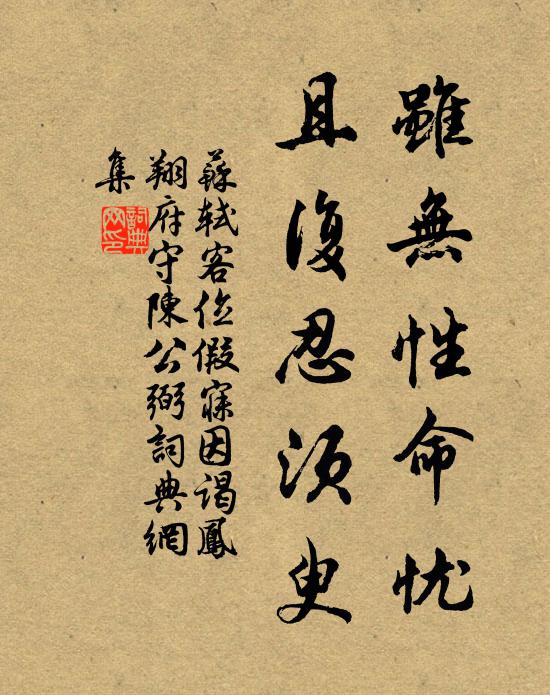 雖無性命忧
且復忍須臾
蘇軾客位假寐因谒鳳
翔府守陳公弼詞典網
集
詞典網印